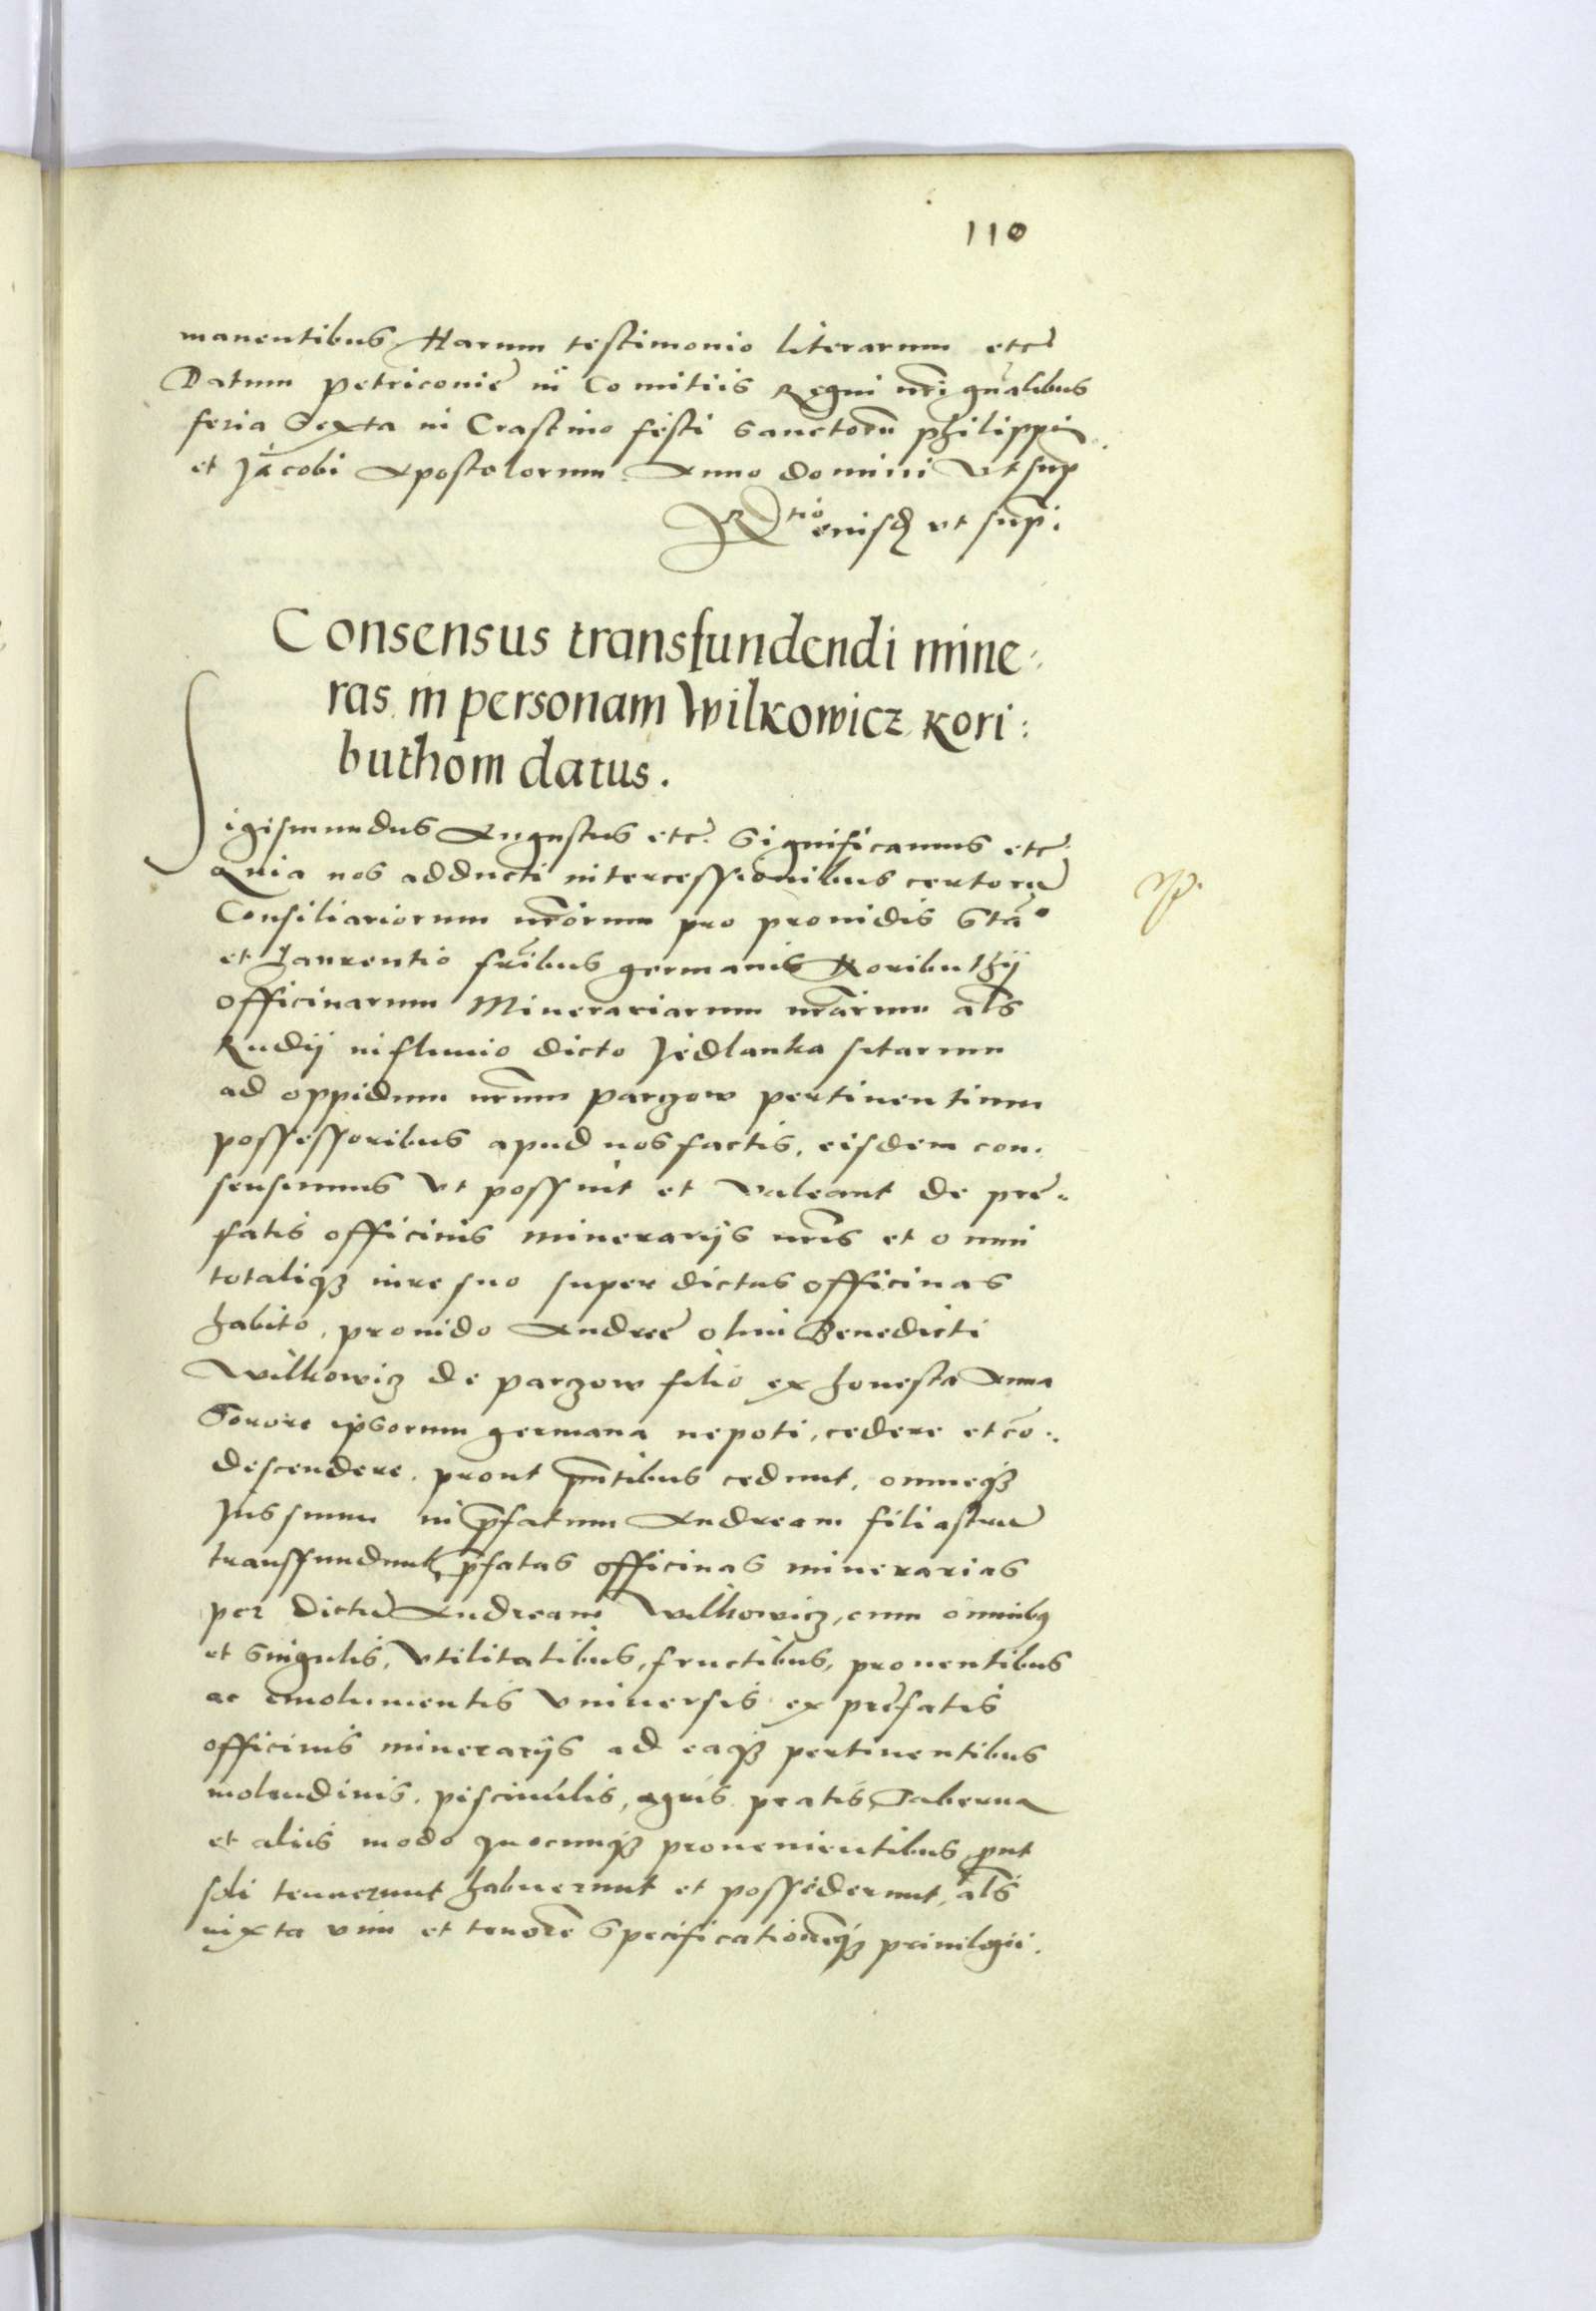 110
manentibus. Harum testimonio literarum etc
Datum Petriconie in Comitiis Regni nri gnalibus
feria Sexta in Crastino festi Sanctoru philippi
et Jacobi Apostolorum. Anno domini Vt sup
Rtio eiusd vt supi
Consensus transfundendi mine:
ras in personam Wilkowicz Kori:
buthom datus.
Sigismundus Augustus etc. Significamus etc.
Quia nos adducti intercessionibus certoru
Consiliariorum nrorum pro prouidis Sta°
et Laurentio fribus germanis Koributhij
officinarum Minerariarum nrarum als
Rudij in fluuio dicto Jedlanka sitarum
ad oppidum nrum parczow pertinentium
possessoribus apud nos factis, eisdem con.
sensimus Vt possint et valeant de pre-
fatis officinis minerarijs nris et omni
totaliq3 iure suo super dictas officinas
habito, prouido Andree olim Benedicti
Wilkowicz de parczow filio ex honesta Anna
Sorore ipsorum germana nepoti, cedere et co.
descendere. prout pntibus cedunt, omneq3
Jus suum in pfatum Andream filiastru
transfundunt, pfatas officinas minerarias
per dictu Andream Wilkowicz, cum omnibq
et Singulis, Vtilitatibus, fructibus, prouentibus
ac emolumentis vniuersis ex prefatis
officinis minerarijs ad eaq3 pertinentibus
molendinis, piscinulis, agris pratis, Taberna
et aliis modo quocunq3 prouenientibus, put
soli tenuerunt habuerunt et possiderunt, als
iuxta vim et tenore Specificationeq3 priuilegii.